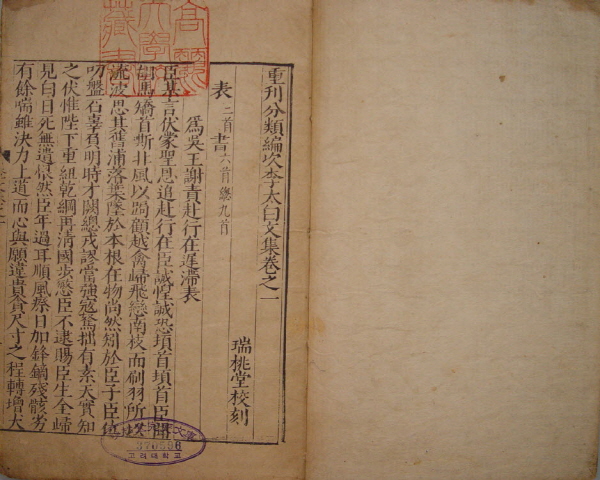 重刊分類編次李太白文集卷之一
瑞桃堂校刻
表 二首 書 六首 總九首
爲吳王謝責赴行在遲滯表
臣某言伏蒙聖恩追赴行在臣誠惶誠恐頓首頓首臣聞
胡馬矯首嘶北風以跼顧越禽歸飛戀南枝而刷羽所以
流波思其舊浦落葉墜於本根在物尚然矧於臣子臣位
叨盤石辜負明時才闕總戎謬當强寇駑拙有素天實知
之伏惟陛下重紐乾綱再淸國步愍臣不逮賜臣生全歸
見白日死無遺恨然臣年過耳順風瘵日加鋒鏑殘骸劣
有餘喘雖決力上道而心與願違貴貪尺寸之程轉增犬
고려대학교